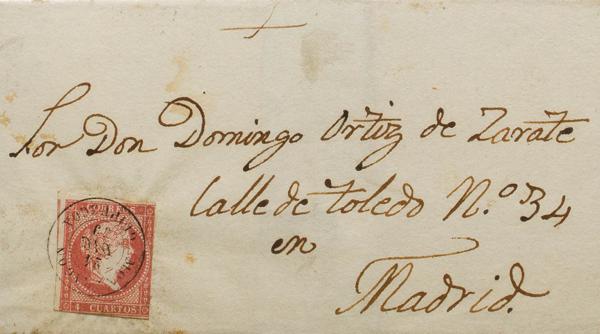 Sor Don Domingo Ortiz de Zarate
Calle de Toledo N.º 34
en
Madrid.
CORREOS
4 CUARTOS